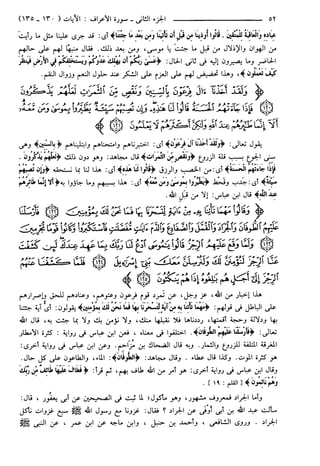 ٥٢ الجزء الثاني - سورة الأعراف : الآيات (١٣٠ - ١٣٥)
عباده والعاقبة للمتقين . قالوا أوذينا من قبل أن تأتينا ومن بعد ما جئتنا﴾ أى: قد جرى علينا مثل ما رأيت
من الهوان والإذلال من قبل ما جئت يا موسى، ومن بعد ذلك. فقال منبها لهم على حالهم
الحاضر وما يصيرون إليه فى ثانى الحال: ﴿عسى ربكم أن يهلك عدوكم ويستخلفكم فى الأرض فينظر
كيف تعملون﴾، وهذا تحضيض لهم على العزم على الشكر عند حلول النعم وزوال النقم.
﴿ولقد أخذنا آل فرعون بالسنين ونقص من الثمرات لعلهم يذكرون
فإذا جاءتهم الحسنة قالوا لنا هذه وإن تصبهم سيئة يطيروا بموسى ومن معه
ألا إنما طائرهم عند الله ولكن أكثرهم لا يعلمون﴾
يقول تعالى: ﴿ولقد أخذنا آل فرعون﴾ أى: اختبرناهم وامتحناهم وابتليناهم ﴿بالسنين﴾ وهى
سنى الجوع بسبب قلة الزروع ﴿ونقص من الثمرات﴾ قال مجاهد: وهو دون ذلك ﴿لعلهم يذكرون .
فإذا جاءتهم الحسنة﴾ أى: من الخصب والرزق ﴿قالوا لنا هذه﴾ أى: هذا لنا بما نستحقه ﴿وإن تصبهم
سيئة﴾ أى: جدب وقحط ﴿يطيروا بموسى ومن معه﴾ أى: هذا بسببهم وما جاؤوا به ﴿ألا إنما طائرهم
عند الله﴾ قال ابن عباس: إلا من قبل الله.
﴿وقالوا مهما تأتنا به من آية لتسحرنا بها فما نحن لك بمؤمنين فأرسلنا
عليهم الطوفان والجراد والقمل والضفادع والدم آيات مفصلات فاستكبروا وكانوا قوما
مجرمين ولما وقع عليهم الرجز قالوا يا موسى ادع لنا ربك بما عهد عندك لئن
كشفت عنا الرجز لنؤمنن لك ولنرسلن معك بنى إسرائيل فلما كشفنا عنهم
الرجز إلى أجل هم بالغوه إذا هم ينكثون﴾
هذا إخبار من الله، عز وجل، عن تمرد قوم فرعون وعتوهم، وعنادهم للحق وإصرارهم
على الباطل فى قولهم: ﴿مهما تأتنا به من آية لتسحرنا بها فما نحن لك بمؤمنين﴾ يقولون: أى آية جئتنا
بها ودلالة وحجة أقمتها، رددناها فلا نقبلها منك، ولا نؤمن بك ولا بما جئت به، قال الله
تعالى: ﴿فأرسلنا عليهم الطوفان﴾. اختلفوا فى معناه ، فعن ابن عباس فى رواية : كثرة الأمطار
المغرقة المتلفة للزروع والثمار. وبه قال الضحاك بن مزاحم. وعن ابن عباس فى رواية أخرى:
هو كثرة الموت. وكذا قال عطاء . وقال مجاهد: ﴿الطوفان﴾: الماء، والطاعون على كل حال.
وقال ابن عباس فى رواية أخرى: هو أمر من الله طاف بهم، ثم قرأ: ﴿فطاف عليها طائف من ربك
وهم نائمون﴾ [ القلم : ١٩ ] .
وأما الجراد فمعروف مشهور، وهو مأكول؛ لما ثبت فى الصحيحين عن أبى يعفور ، قال:
سألت عبد الله بن أبى أوفى عن الجراد ؟ فقال: غزونا مع رسول الله ﷺ سبع غزوات نأكل
الجراد . وروى الشافعى ، وأحمد بن حنبل ، وابن ماجه عن ابن عمر ، عن النبى ﷺ